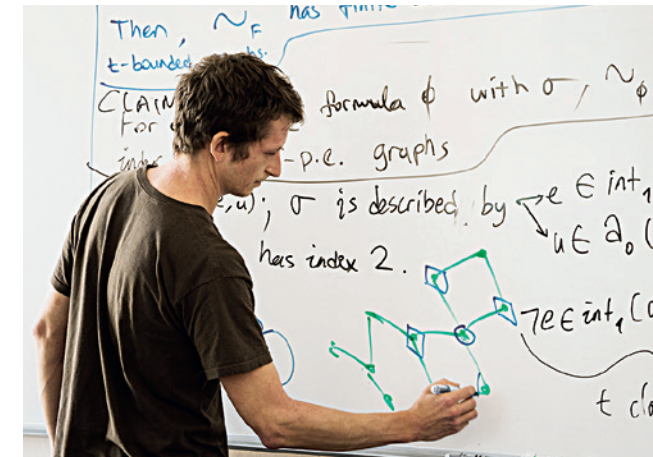 Then, ~F has finite
t-bounded
CLAIM formula ϕ with σ, ~ϕ
For
-p.e. graphs
,u); σ is described by e ∈ int₁
u ∈ ∂₀(
has index 2.
¬e ∈ int₁(
t